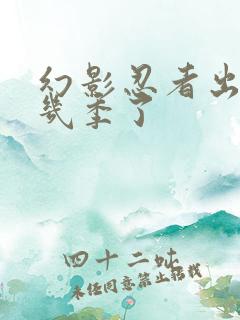 幻影忍者出
几季了
四十二吆
未经同意禁止转载